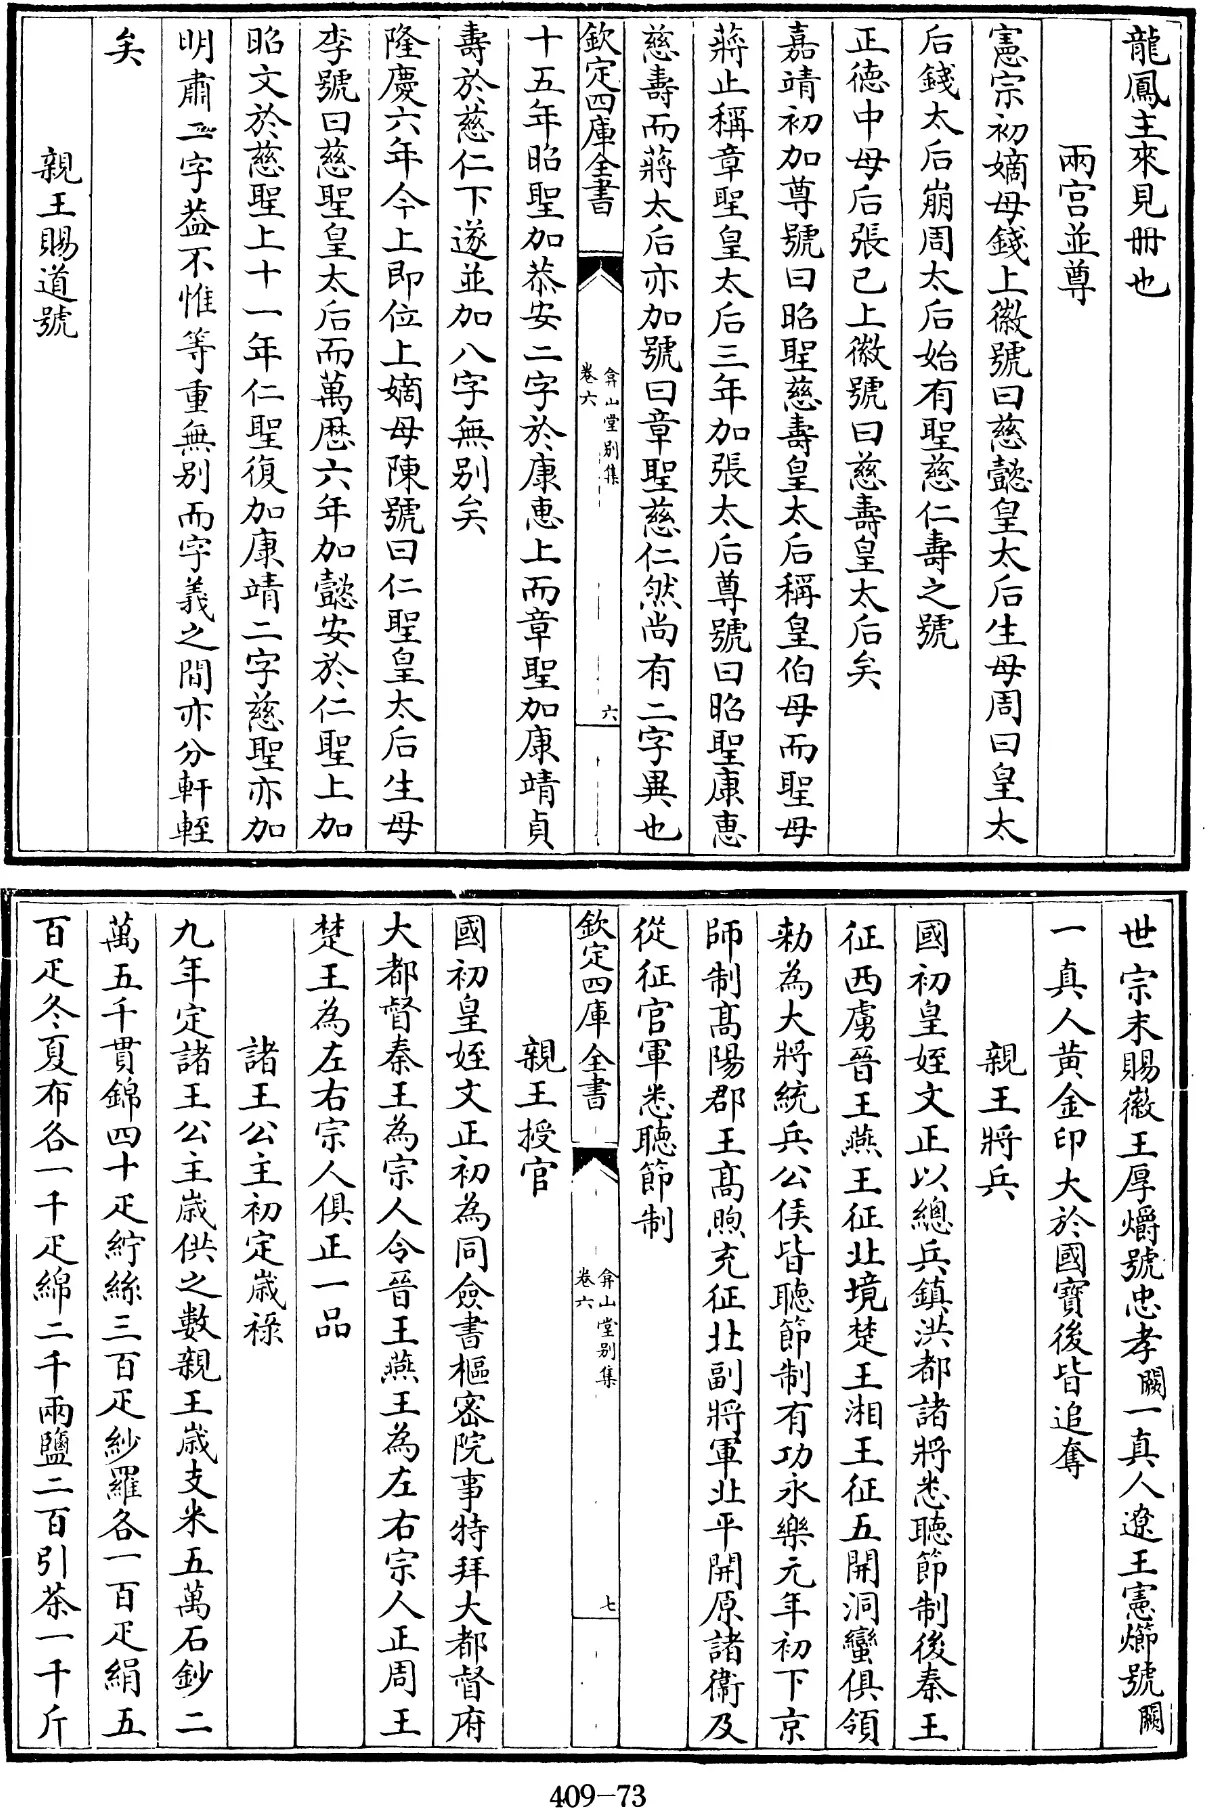 龍鳳主來見冊也
兩宫並尊
憲宗初嫡母錢上徽號曰慈懿皇太后生母周曰皇太
后錢太后崩周太后始有聖慈仁壽之號
正德中母后張已上徽號曰慈壽皇太后矣
嘉靖初加尊號曰昭聖慈壽皇太后稱皇伯母而聖母
蔣止稱章聖皇太后三年加張太后尊號曰昭聖康惠
慈壽而蔣太后亦加號曰章聖慈仁然尚有二字異也
欽定四庫全書
弇山堂别集
卷六
六
十五年昭聖加恭安二字於康惠上而章聖加康靖貞
壽於慈仁下遂並加八字無别矣
隆慶六年今上即位上嫡母陳號曰仁聖皇太后生母
李號曰慈聖皇太后而萬厯六年加懿安於仁聖上加
昭文於慈聖上十一年仁聖復加康靖二字慈聖亦加
明肅二字葢不惟等重無别而字義之間亦分軒輊
矣
親王賜道號
世宗末賜徽王厚爝號忠孝闕一真人遼王憲㸅號闕
一真人黄金印大於國寶後皆追奪
親王將兵
國初皇姪文正以總兵鎮洪都諸將悉聽節制後秦王
征西虜晉王燕王征北境楚王湘王征五開洞蠻俱領
勅為大將統兵公侯皆聽節制有功永樂元年初下京
師制髙陽郡王髙煦充征北副將軍北平開原諸衞及
從征官軍悉聽節制
欽定四庫全書
弇山堂别集
卷六
七
親王授官
國初皇姪文正初為同僉書樞密院事特拜大都督府
大都督秦王為宗人令晉王燕王為左右宗人正周王
楚王為左右宗人俱正一品
諸王公主初定嵗祿
九年定諸王公主嵗供之數親王嵗支米五萬石鈔二
萬五千貫錦四十疋紵絲三百疋紗羅各一百疋絹五
百疋冬夏布各一千疋綿二千兩鹽二百引茶一千斤
409—73